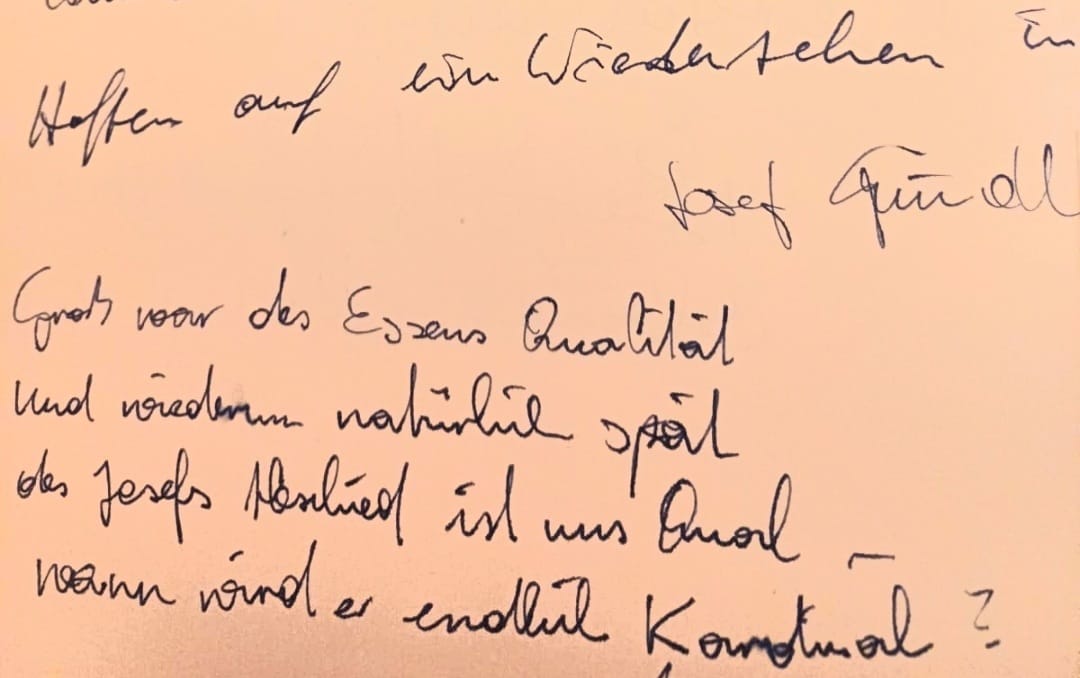 Hoffen auf ein Wiedersehen in
Josef
Groß war des Essens Qualität
und wiederum natürlich spät
des Josefs Abschied ist uns Qual –
wann wird er endlich Kardinal?